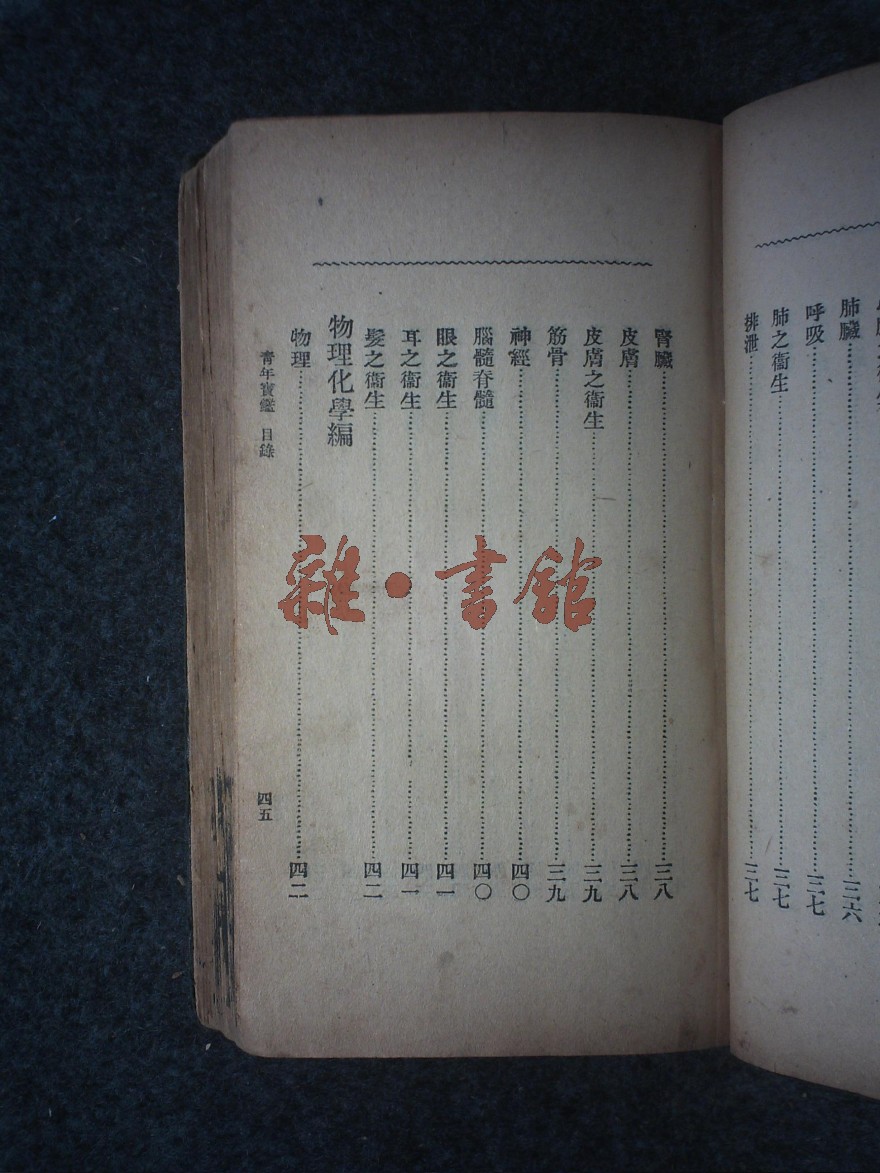 肺臟 三六
呼吸 三七
肺之衞生 三七
排泄 三七
腎臟 三八
皮膚 三八
皮膚之衞生 三九
筋骨 三九
神經 四〇
腦髓脊髓 四〇
眼之衞生 四一
耳之衞生 四一
髮之衞生 四二
物理化學編
物理 四二
青年寶鑑 目錄 四五
雜·書館